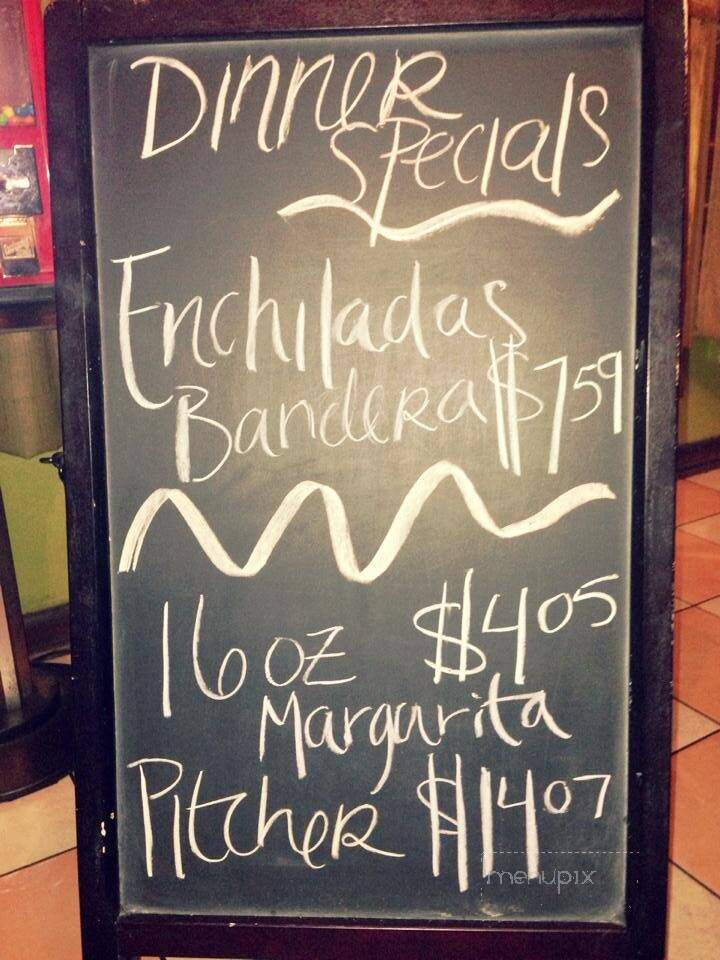 Dinner
Specials
Enchiladas
Bandera $7.59
16 oz $4.05
Margarita
Pitcher $14.07
menupix